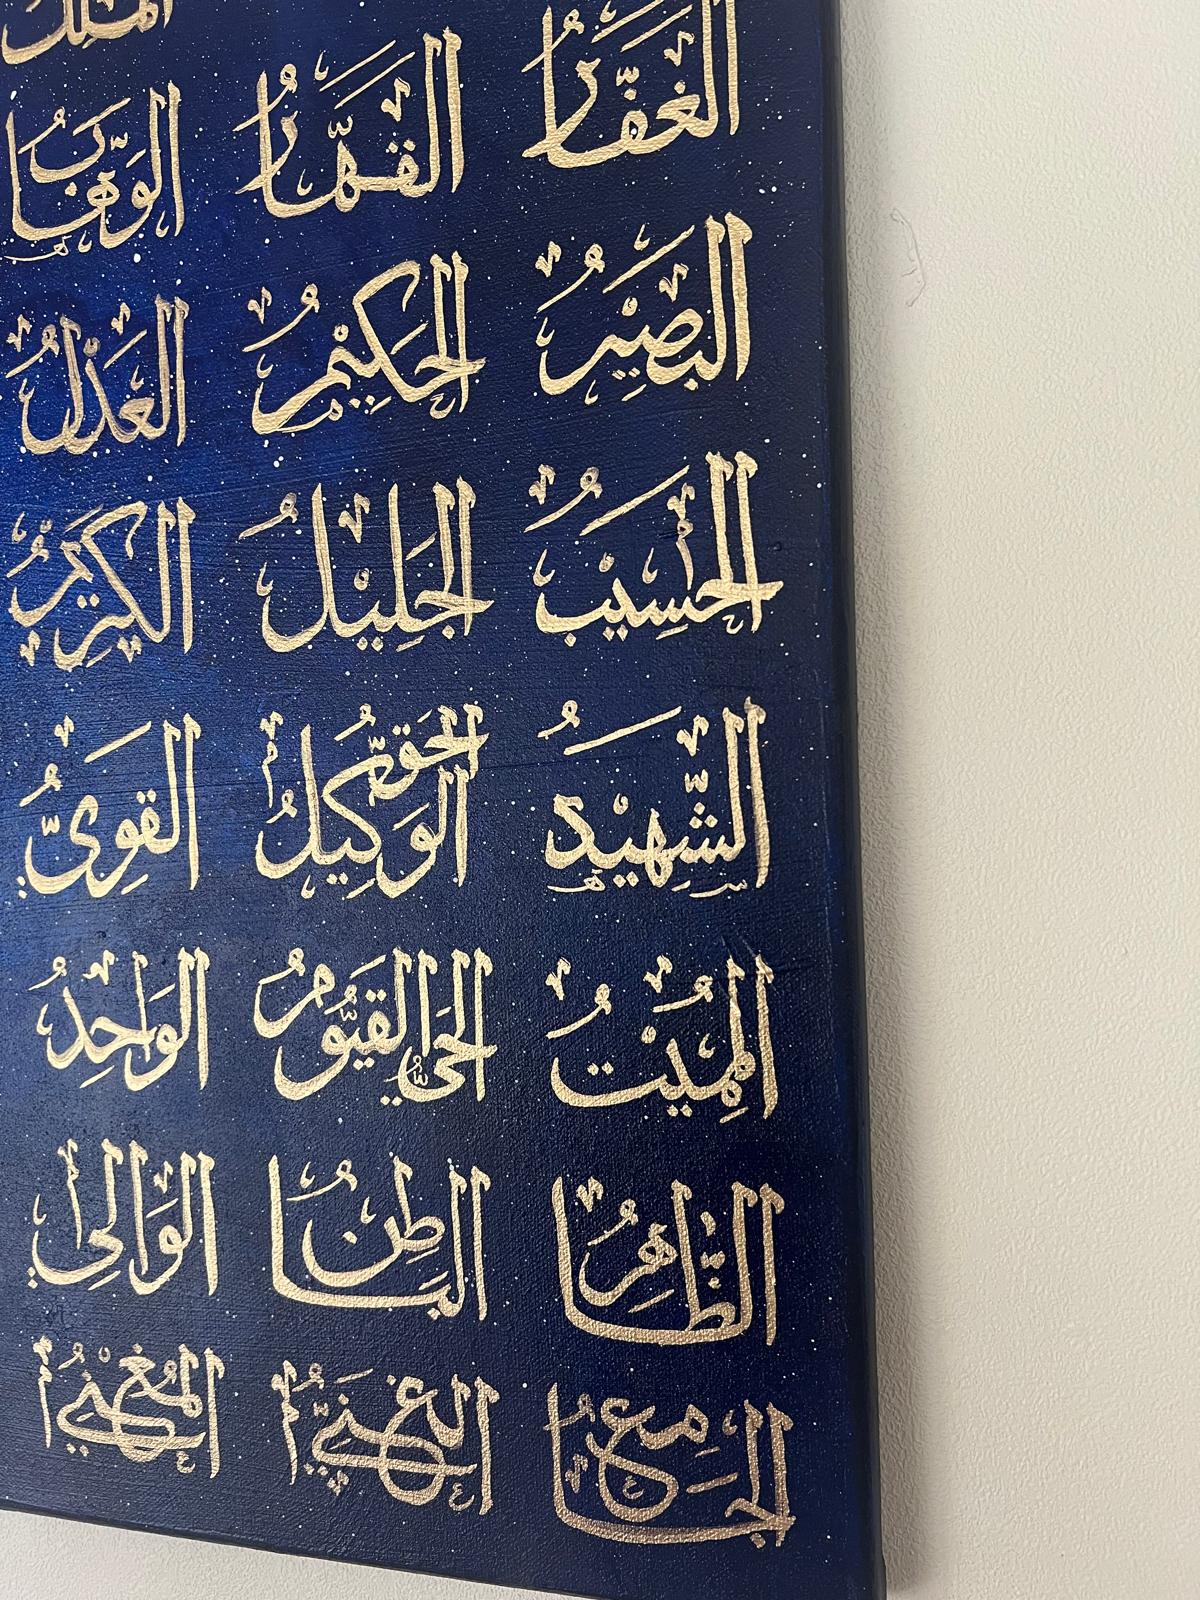 الملك
الغَفَّارُ القَهَّارُ الوَهَّابُ
البَصِيْرُ الحَكِيْمُ العَدْلُ
الحَسِيْبُ الجَلِيْلُ الكَرِيْمُ
الشَّهِيْدُ الحَقُّ الوَكِيْلُ القَوِىُّ
المُمِيْتُ الحَىُّ القَيُّوْمُ الوَاحِدُ
الظَّاهِرُ البَاطِنُ الوَالِى
الجَامِعُ الغَنِىُّ المُغْنِى